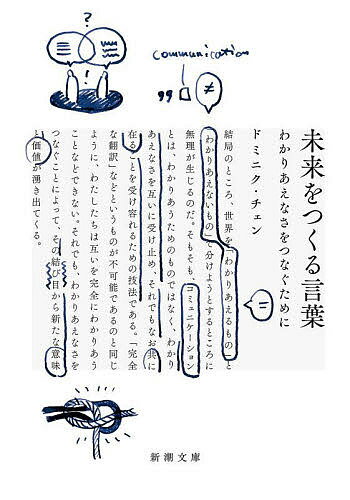 ?
!
communication
,,
≠
未来をつくる言葉
わかりあえなさをつなぐために
ドミニク・チェン
結局のところ、世界を「わかりあえるもの」と
「わかりあえないもの」で分けようとするところに
無理が生じるのだ。そもそも、コミュニケーション
とは、わかりあうためのものではなく、わかり
あえなさを互いに受け止め、それでもなお共に
在ることを受け容れるための技法である。「完全
な翻訳」などというものが不可能であるのと同じ
ように、わたしたちは互いを完全にわかりあう
ことなどできない。それでも、わかりあえなさを
つなぐことによって、その結び目から新たな意味
と価値が湧き出てくる。
=
新潮文庫